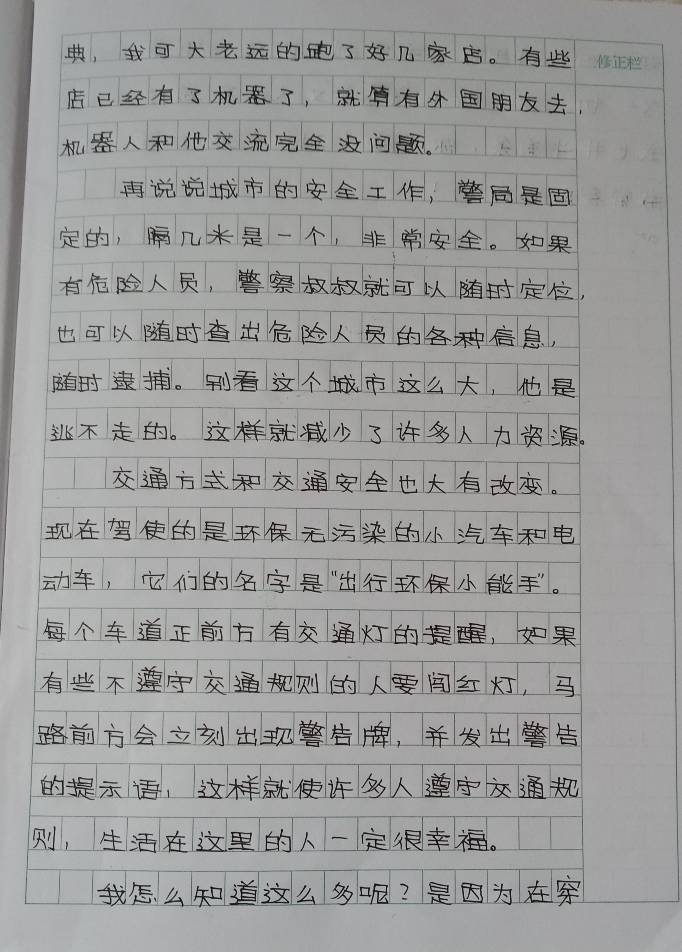 典，我可大老远的跑了好几家店。有些
修正栏
店已经有了机器了，就算有外国朋友去，
机器人和他交流完全没问题。
再说说城市的安全工作，警局是固
定的，隔几米是一个，非常安全。如果
有危险人员，警察叔叔就可以随时定位，
也可以随时查出危险人员的各种信息，
随时逮捕。别看这个城市这么大，他是
逃不走的。这样就减少了许多人力资源。
交通方式和交通安全也大有改变。
现在驾使的是环保无污染的小汽车和电
动车，它们的名字是“出行环保小能手”。
每个车道正前方有交通灯的提醒，如果
有些不遵守交通规则的人要闯红灯，马
路前方会立刻出现警告牌，并发出警告
的提示语，这样就使许多人遵守交通规
则，生活在这里的人一定很幸福。
我怎么知道这么多呢？是因为在穿